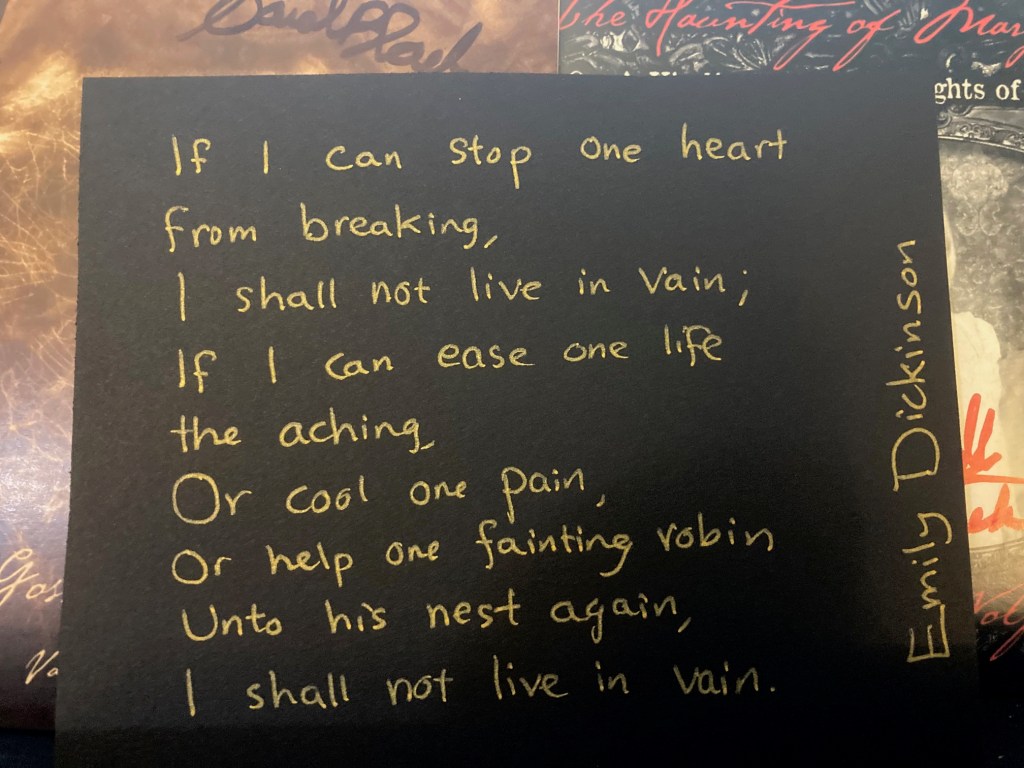 The Haunting of
ghts of
If I can stop one heart
from breaking,
I shall not live in vain;
If I can ease one life
the aching,
Or cool one pain,
Or help one fainting robin
Unto his nest again,
I shall not live in vain.
Emily Dickinson